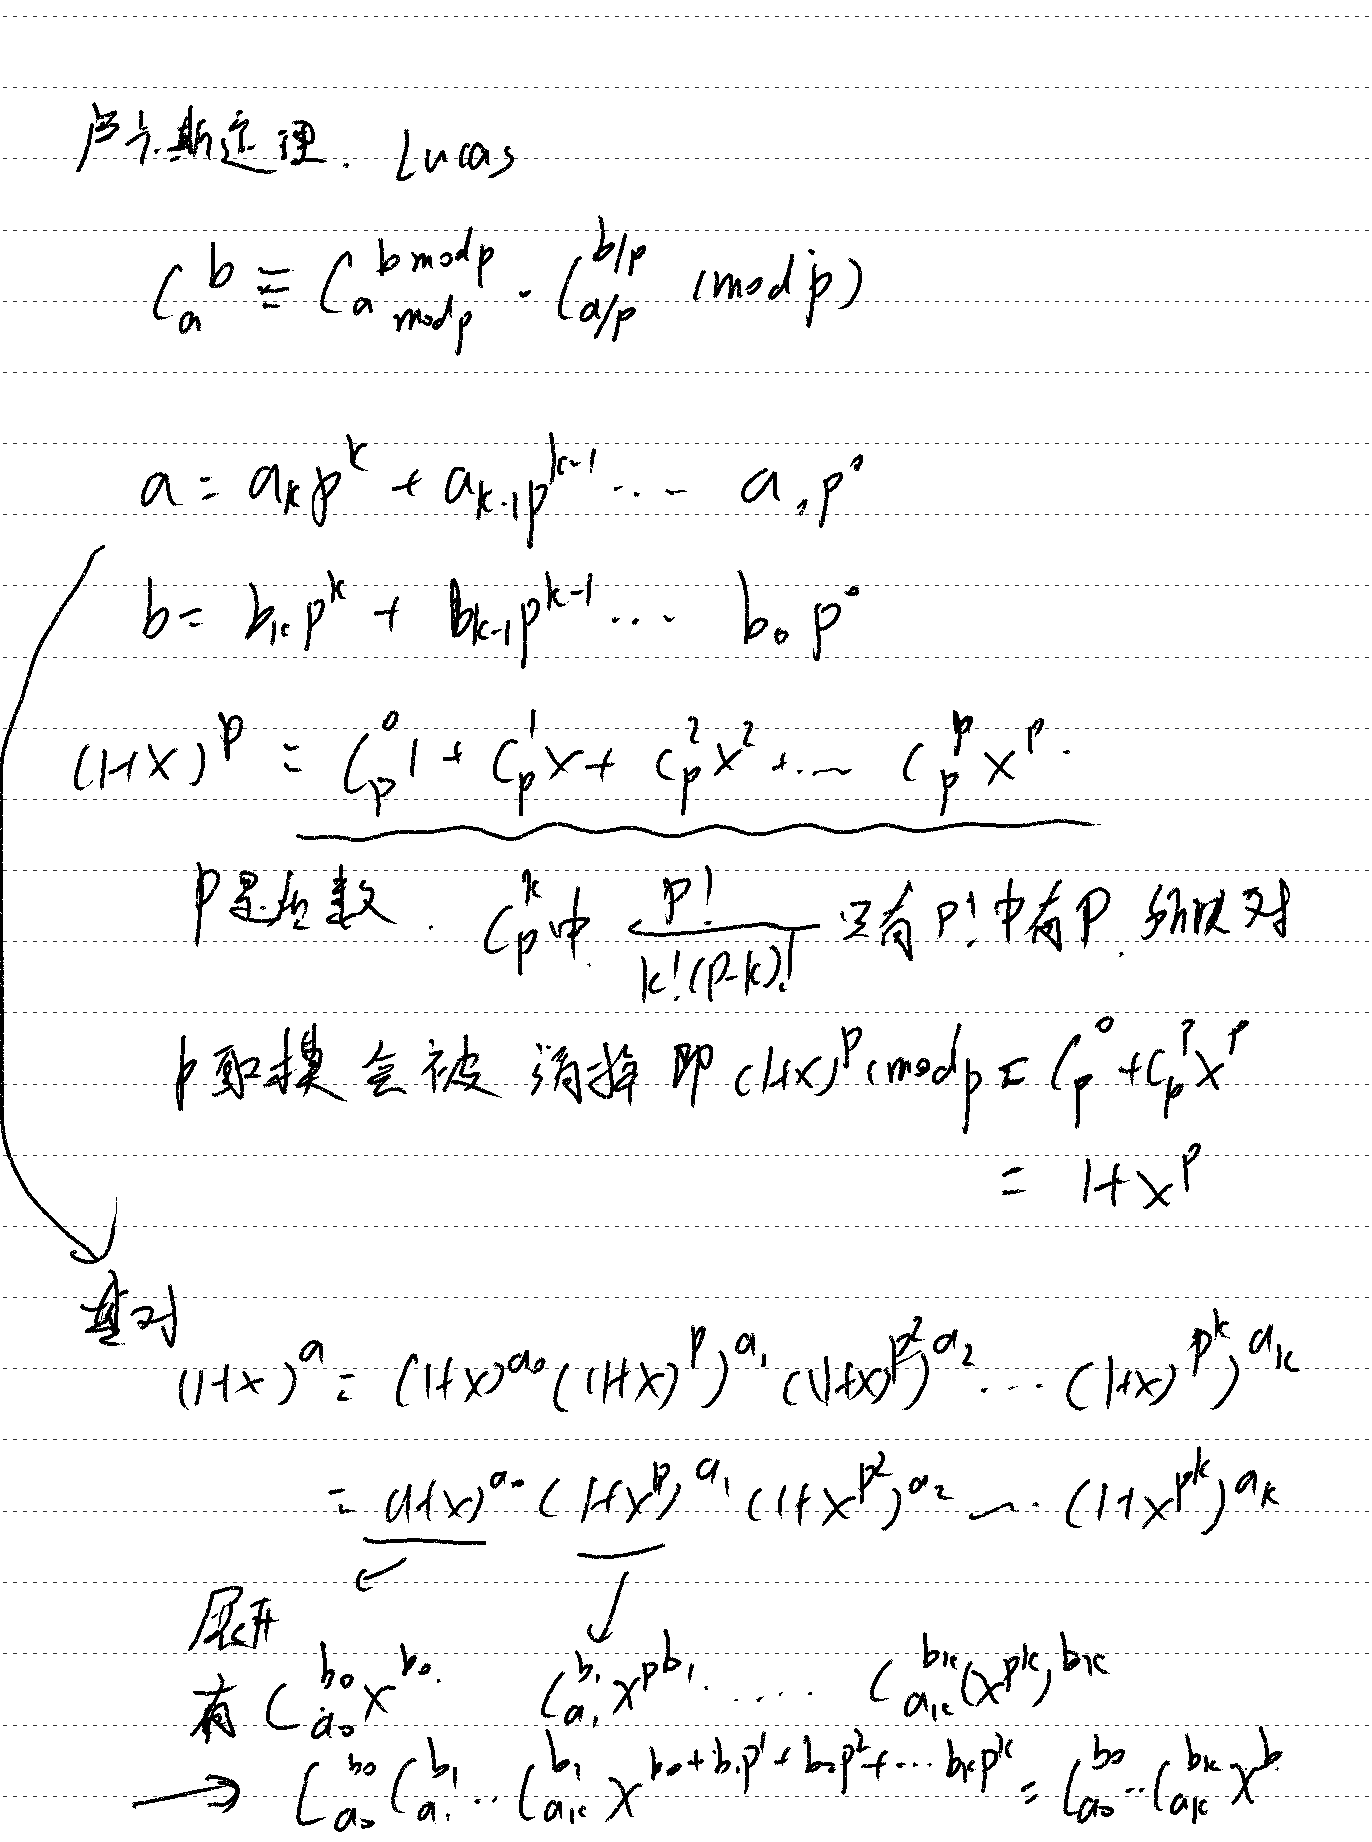 卢卡斯定理. Lucas
C_a^b ≡ C_{a mod p}^{b mod p} · C_{a/p}^{b/p} (mod p)
a = a_k p^k + a_{k-1} p^{k-1} ··· a_0 p^0
b = b_k p^k + b_{k-1} p^{k-1} ··· b_0 p^0
(1+x)^p = C_p^0 1 + C_p^1 x + C_p^2 x^2 + ··· C_p^p x^p.
p是质数. C_p^k中 p!/(k!(p-k)!) 只有p!中有p. 所以对
p取模会被消掉 即 (1+x)^p (mod p = C_p^0 + C_p^p x^p
= 1+x^p
(1+x)^a = (1+x)^{a_0} ((1+x)^p)^{a_1} (1+x)^{p^2})^{a_2} ··· (1+x)^{p^k})^{a_k}
= (1+x)^{a_0} (1+x^p)^{a_1} (1+x^{p^2})^{a_2} ··· (1+x^{p^k})^{a_k}
展开
有 C_{a_0}^{b_0} x^{b_0}. C_{a_1}^{b_1} x^{p b_1} ····· C_{a_k}^{b_k} (x^{p^k})^{b_k}
→ C_{a_0}^{b_0} C_{a_1}^{b_1} ·· C_{a_k}^{b_1} x^{b_0 + b_1 p^1 + b_2 p^2 + ··· b_k p^k} = C_{a_0}^{b_0} ·· C_{a_k}^{b_k} x^b